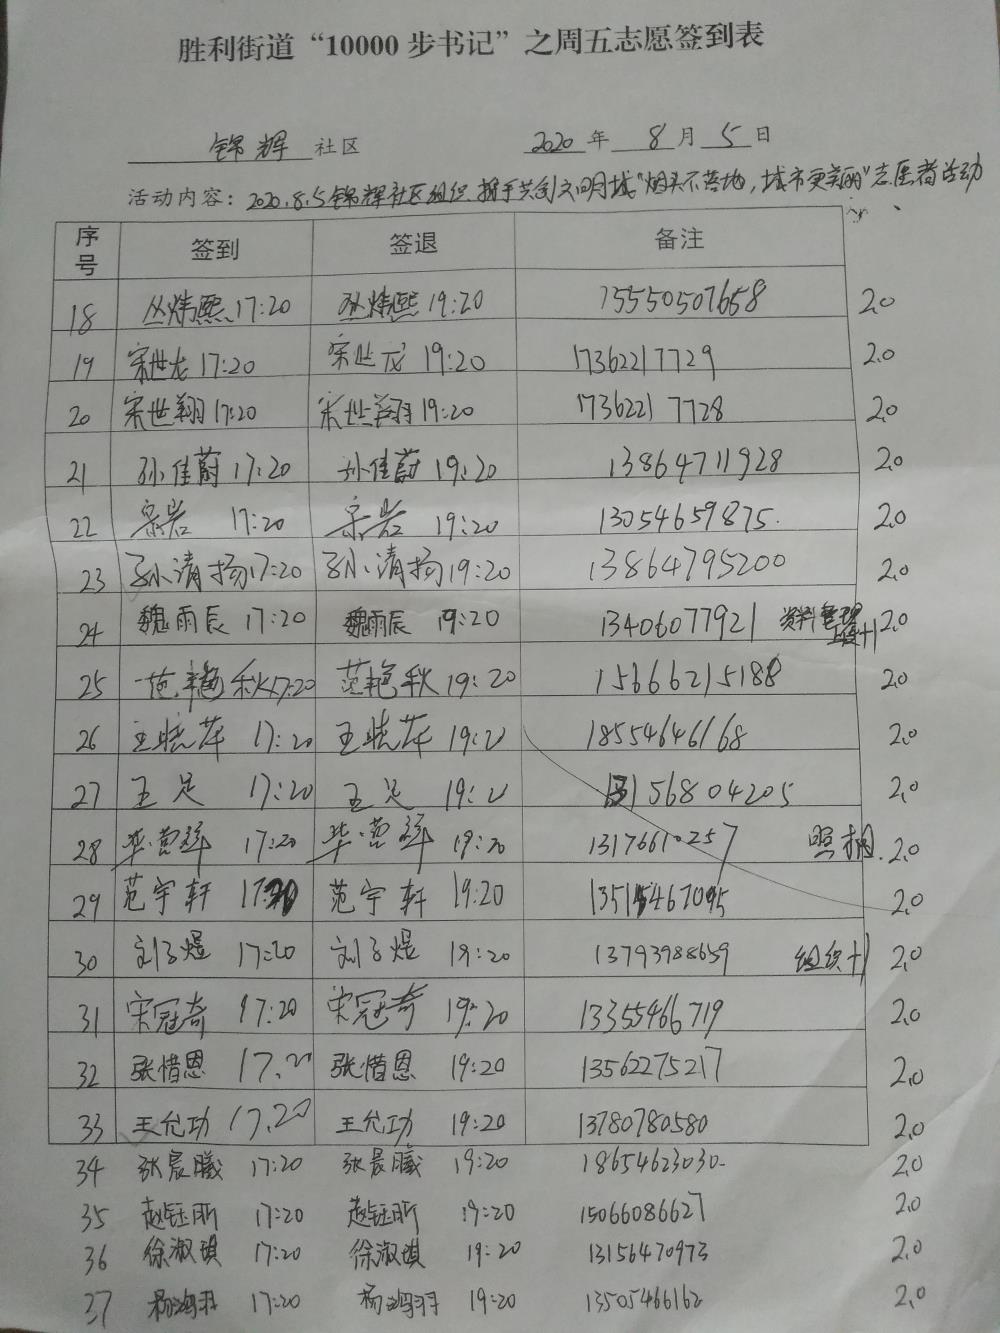 胜利街道“10000步书记”之周五志愿签到表
锦辉 社区 2020 年 8 月 5 日
活动内容：2020.8.5锦辉社区组织 携手共创文明城“烟头不落地，城市更美丽”志愿者活动
序号 签到 签退 备注
18 丛炜熙 17:20 丛炜熙 19:20 15550507658 2.0
19 宋世龙 17:20 宋世龙 19:20 17362217729 2.0
20 宋世翔 17:20 宋世翔 19:20 17362217728 2.0
21 孙佳蔚 17:20 孙佳蔚 19:20 13864711928 2.0
22 宗岩 17:20 宗岩 19:20 13054659875. 2.0
23 孙清扬 17:20 孙清扬 19:20 13864795200 2.0
24 魏雨辰 17:20 魏雨辰 19:20 13406077921 资料管理 +1 2.0
25 范艳秋 17:20 范艳秋 19:20 15666215188 2.0
26 王晓萍 17:20 王晓萍 19:2 18554646168 2.0
27 王足 17:20 王足 19:2 156804205 2.0
28 毕营辉 17:20 毕营辉 19:20 13176610257 照相. 2.0
29 范宇轩 17:20 范宇轩 19:20 13515467095 2.0
30 刘子煜 17:20 刘子煜 19:20 13793988659 组织+1 2.0
31 宋冠奇 17:20 宋冠奇 19:20 13355466719 2.0
32 张惜恩 17:20 张惜恩 19:20 13562275217 2.0
33 王允功 17.20 王允功 19:20 13780780580 2.0
34 张晨曦 17:20 张晨曦 19:20 18654623030. 2.0
35 赵钰昕 17:20 赵钰昕 19:20 15066086627 2.0
36 徐淑琪 17:20 徐淑琪 19:20 13156470973 2.0
37 杨鸿羽 17:20 杨鸿羽 19:20 13505466162 2.0